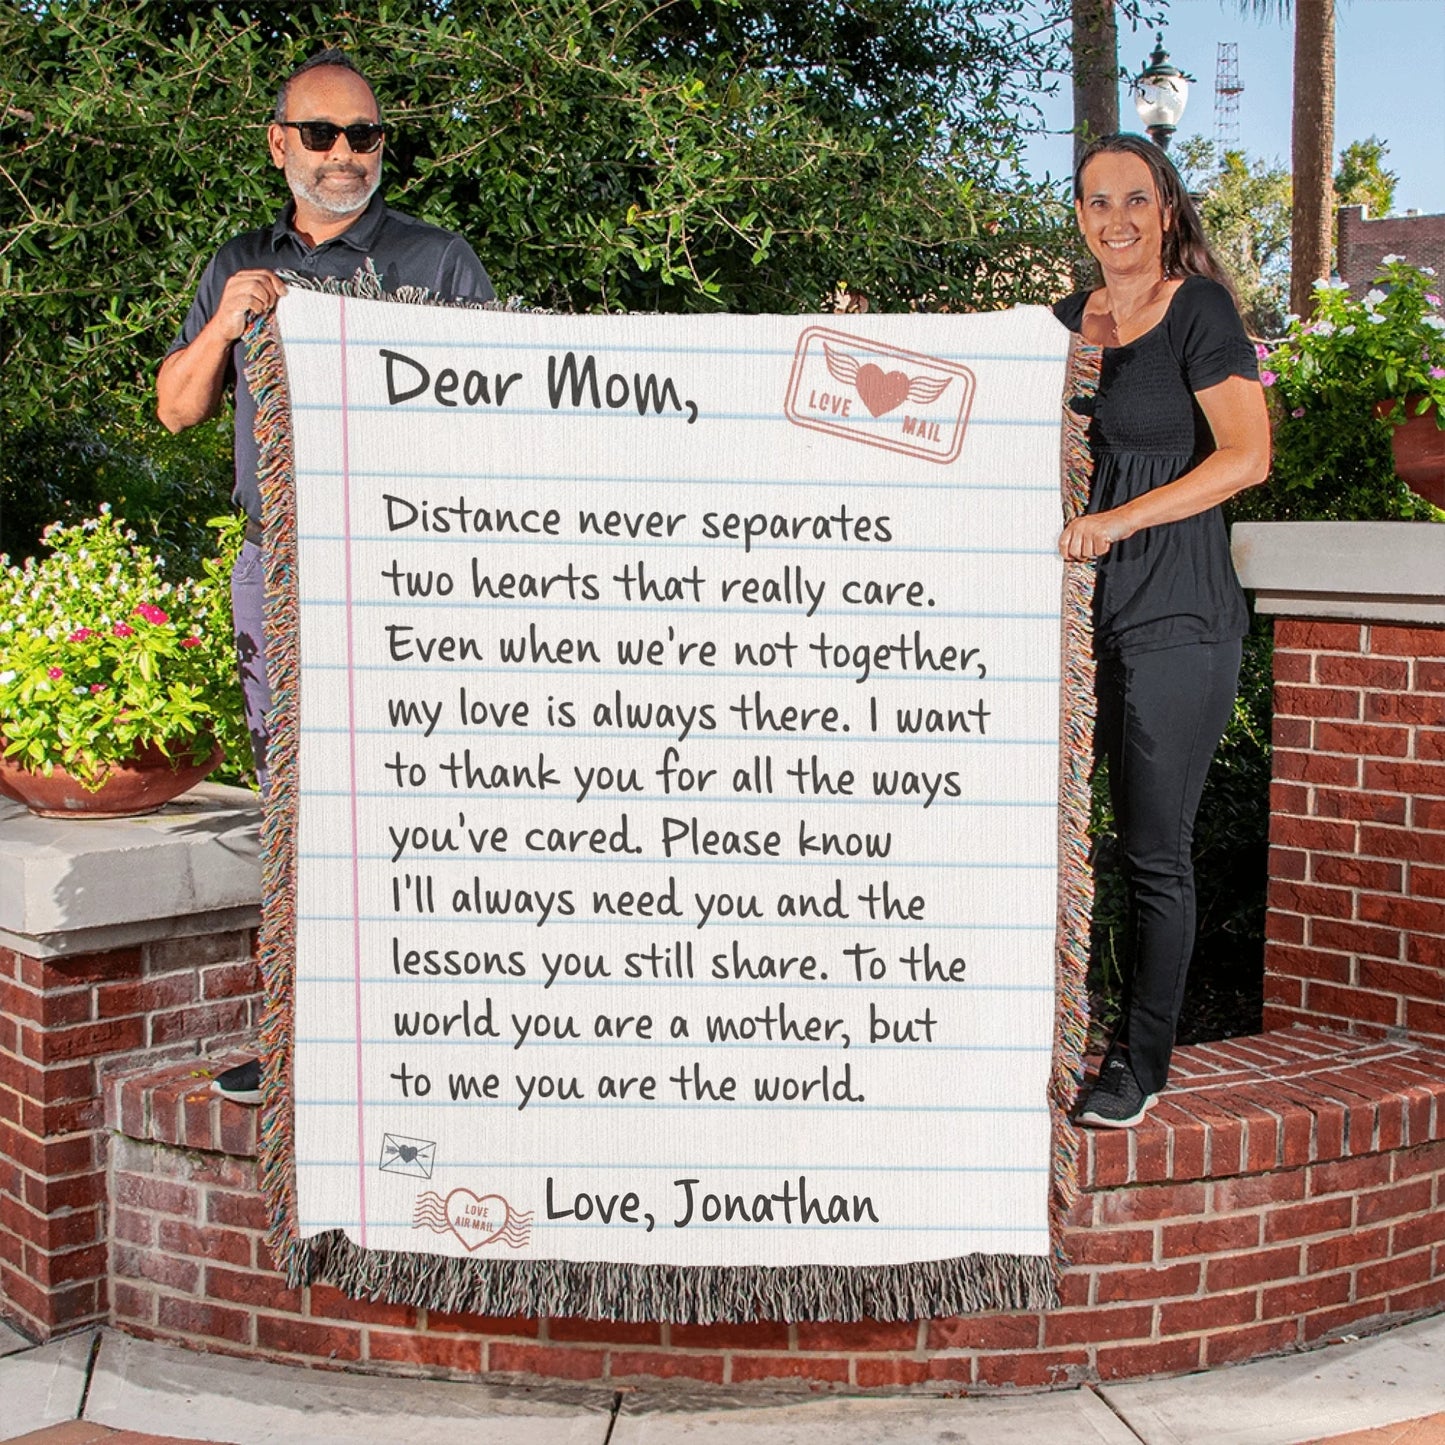 Dear Mom,
LOVE
MAIL
Distance never separates
two hearts that really care.
Even when we're not together,
my love is always there. I want
to thank you for all the ways
you've cared. Please know
I'll always need you and the
lessons you still share. To the
world you are a mother, but
to me you are the world.
Love, Jonathan
LOVE
AIR MAIL